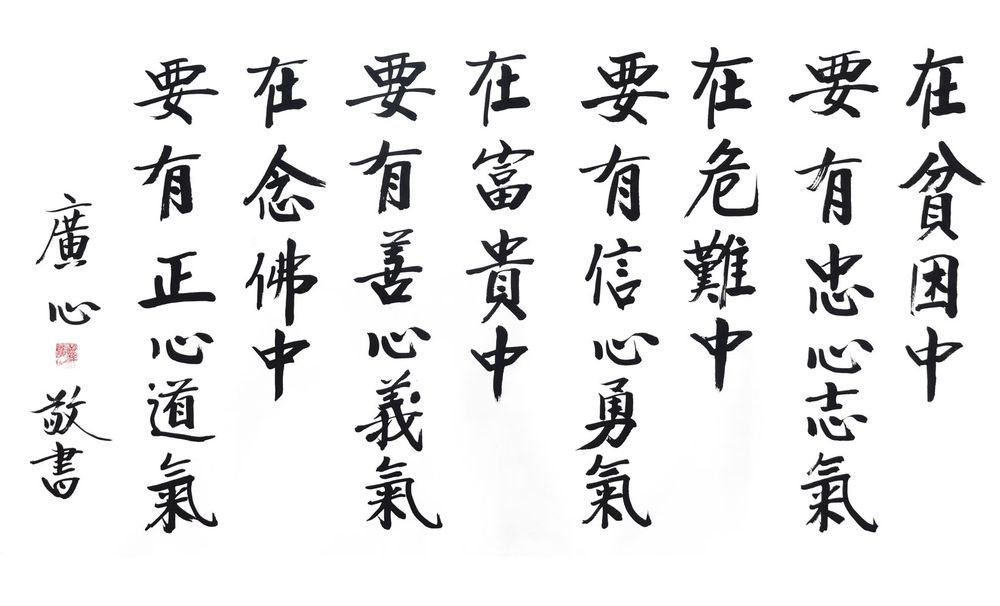 在貧困中
要有忠心志氣
在危難中
要有信心勇氣
在富貴中
要有善心義氣
在念佛中
要有正心道氣
廣心敬書